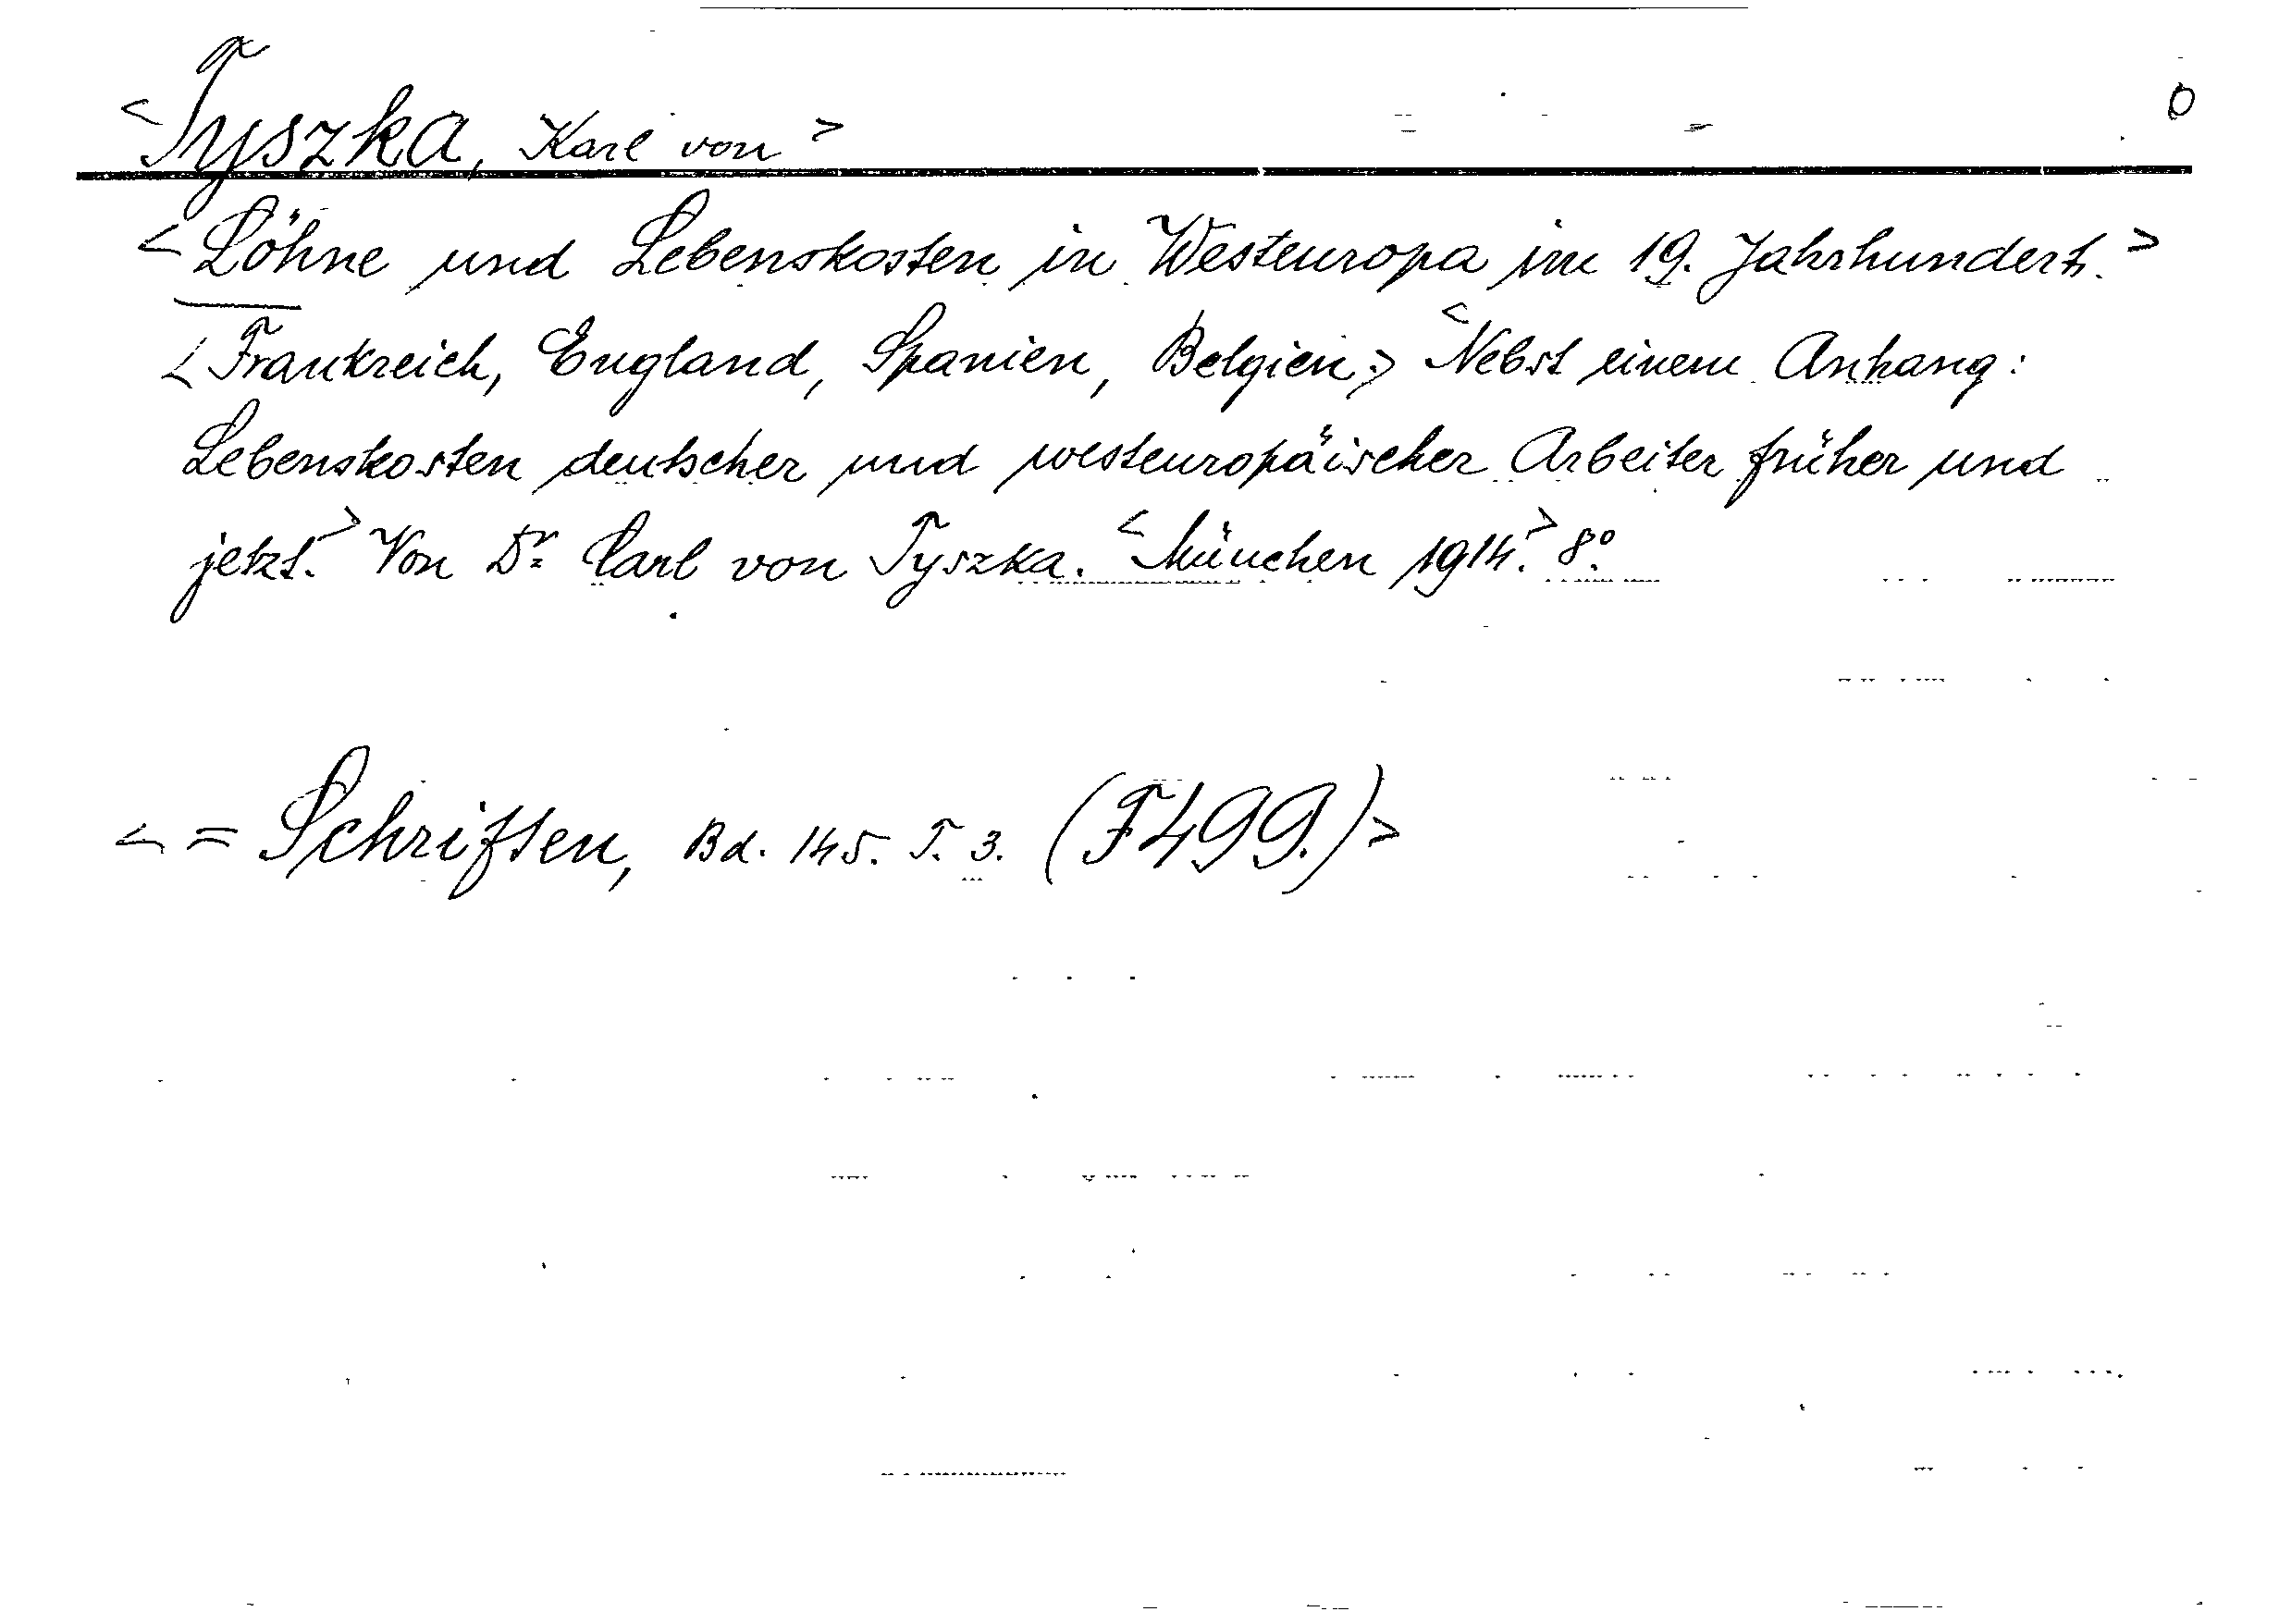 <Tyszka, Karl von> 0
<Löhne und Lebenskosten in Westeuropa im 19. Jahrhundert.>
<Frankreich, England, Spanien, Belgien.> <Nebst einem Anhang:
Lebenskosten deutscher und westeuropäischer Arbeiter früher und
jetzt.> Von Dr. Carl von Tyszka. <München 1914.> 8°.
<= Schriften, Bd. 145. T. 3. (F499.)>